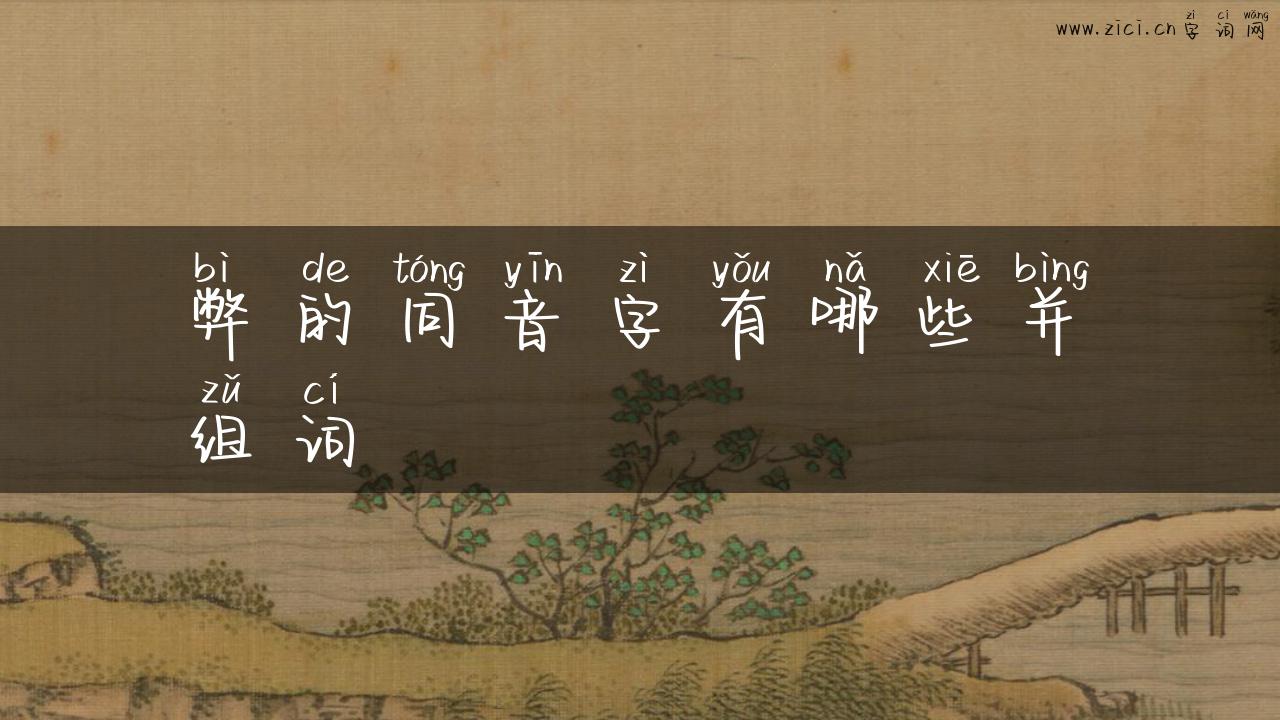 zì cí wǎng
www.zici.cn 字词网
bì de tóng yīn zì yǒu nǎ xiē bìng
弊的同音字有哪些并
zǔ cí
组词